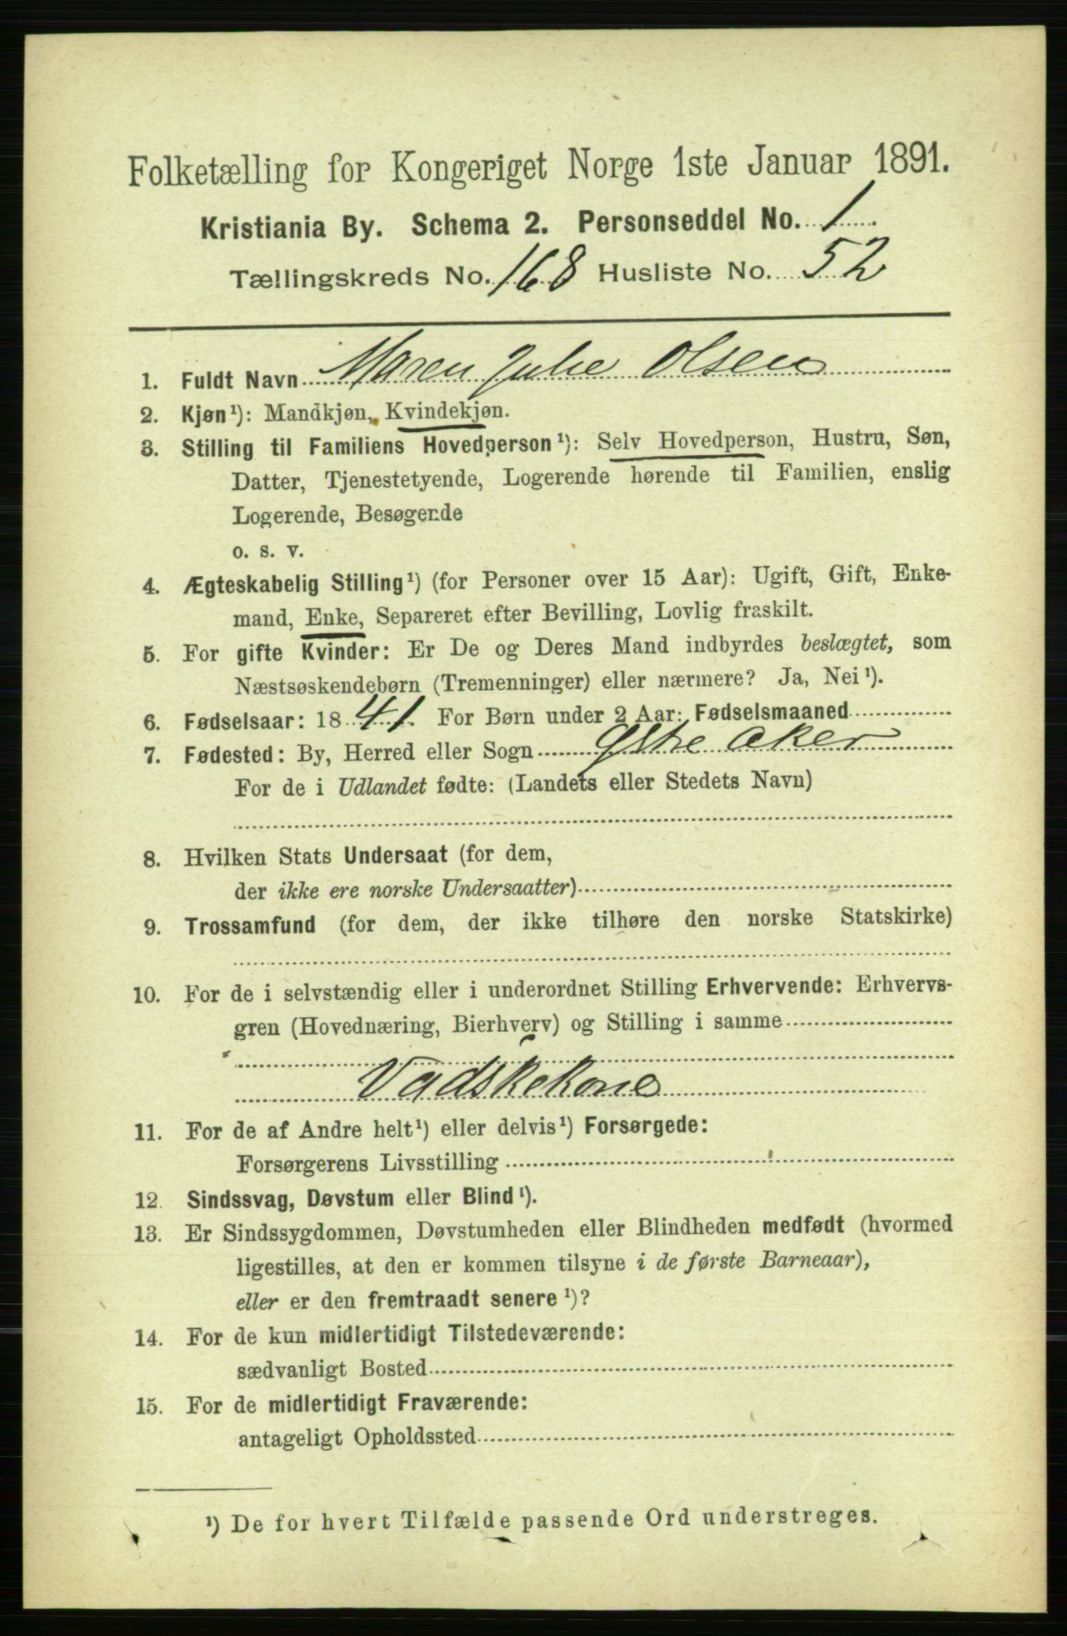 Folketælling for Kongeriget Norge 1ste Januar 1891.
Kristiania By. Schema 2. Personseddel No. 1
Tællingskreds No. 168 Husliste No. 52
1. Fuldt Navn Maren Julie Olsen
2. Kjøn¹): Mandkjøn, Kvindekjøn.
3. Stilling til Familiens Hovedperson¹): Selv Hovedperson, Hustru, Søn,
Datter, Tjenestetyende, Logerende hørende til Familien, enslig
Logerende, Besøgende
o. s. v.
4. Ægteskabelig Stilling¹) (for Personer over 15 Aar): Ugift, Gift, Enke-
mand, Enke, Separeret efter Bevilling, Lovlig fraskilt.
5. For gifte Kvinder: Er De og Deres Mand indbyrdes beslægtet, som
Næstsøskendebørn (Tremenninger) eller nærmere? Ja, Nei¹).
6. Fødselsaar: 1841. For Børn under 2 Aar: Fødselsmaaned
7. Fødested: By, Herred eller Sogn Østre Aker
For de i Udlandet fødte: (Landets eller Stedets Navn)
8. Hvilken Stats Undersaat (for dem,
der ikke ere norske Undersaatter)
9. Trossamfund (for dem, der ikke tilhøre den norske Statskirke)
10. For de i selvstændig eller i underordnet Stilling Erhvervende: Erhvervs-
gren (Hovednæring, Bierhverv) og Stilling i samme
Vadskekone
11. For de af Andre helt¹) eller delvis¹) Forsørgede:
Forsørgerens Livsstilling
12. Sindssvag, Døvstum eller Blind¹).
13. Er Sindssygdommen, Døvstumheden eller Blindheden medfødt (hvormed
ligestilles, at den er kommen tilsyne i de første Barneaar),
eller er den fremtraadt senere¹)?
14. For de kun midlertidigt Tilstedeværende:
sædvanligt Bosted
15. For de midlertidigt Fraværende:
antageligt Opholdssted
¹) De for hvert Tilfælde passende Ord understreges.